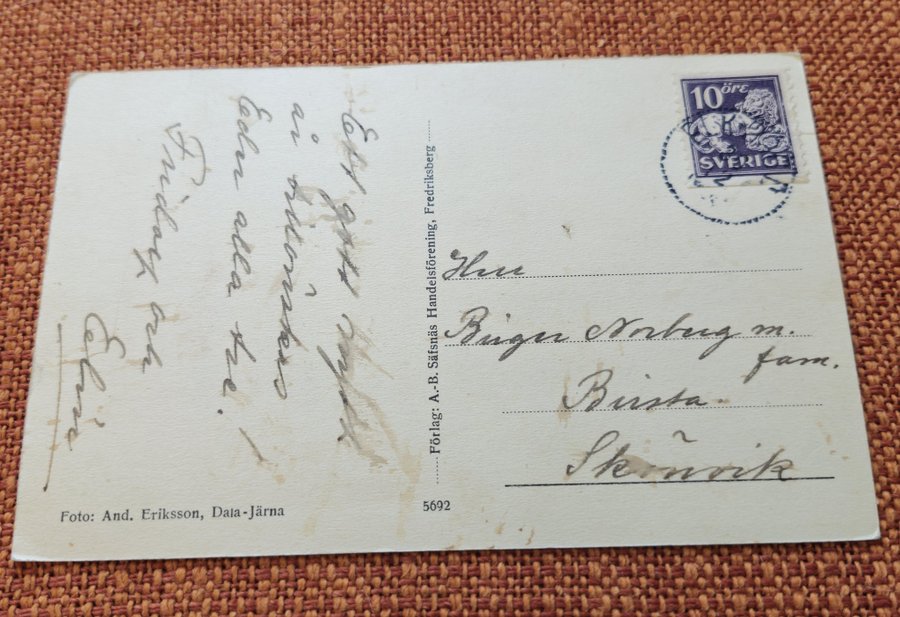 Ett gott Nytt
år tillönskas
Eder alla tre.
Fridolf och
Elvie
Förlag: A.-B. Säfsnäs Handelsförening, Fredriksberg
10 ÖRE
SVERIGE
Herr
Birger Norberg m.
fam.
Birsta.
Skönvik
Foto: And. Eriksson, Dala-Järna
5692